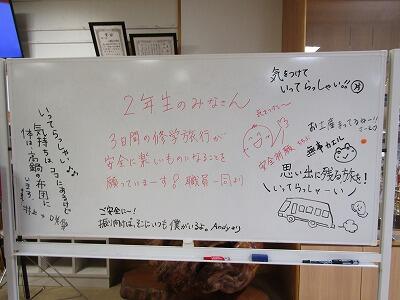 気をつけて
いってらっしゃい!!
2年生のみなさん
3日間の修学旅行が
安全に楽しいものになることを
願っていまーす! 職員一同より
いってらっしゃい
気持ちはココにあるけど
体は、高鍋の布団に
います。
お土産まってるねー!!
無事カエル
安全祈願
思い出に残る旅を!
いってらっしゃーい
ご安全にー!
振り向けば、そこにいつも僕がいるよ。Andyより